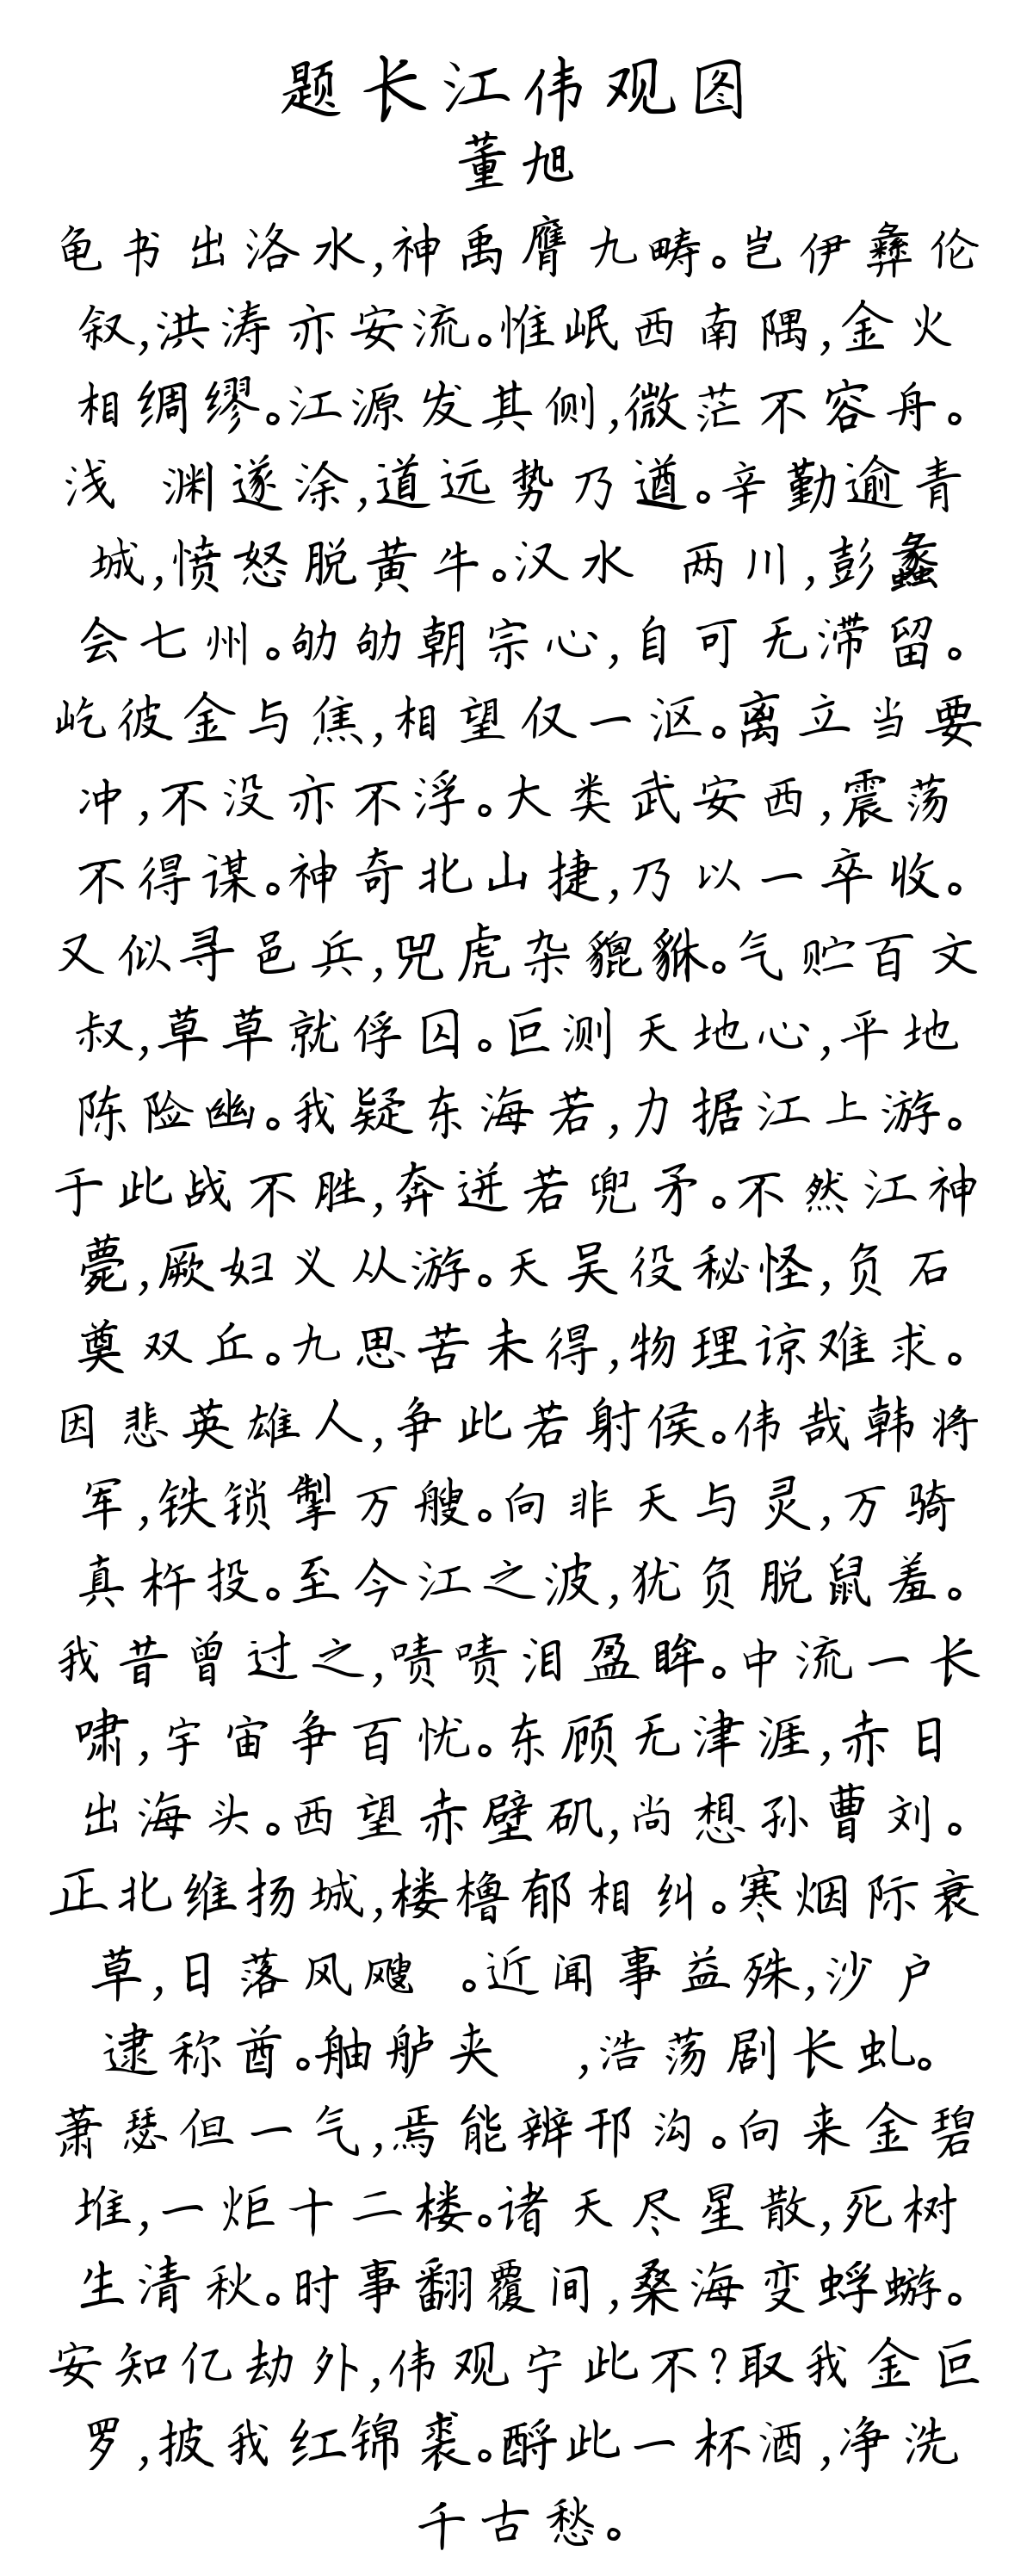 题长江伟观图
董旭
龟书出洛水,神禹膺九畴。岂伊彝伦
叙,洪涛亦安流。惟岷西南隅,金火
相绸缪。江源发其侧,微茫不容舟。
浅 渊遂涂,道远势乃遒。辛勤逾青
城,愤怒脱黄牛。汉水 两川,彭蠡
会七州。劬劬朝宗心,自可无滞留。
屹彼金与焦,相望仅一沤。离立当要
冲,不没亦不浮。大类武安西,震荡
不得谋。神奇北山捷,乃以一卒收。
又似寻邑兵,兕虎杂貔貅。气贮百文
叔,草草就俘囚。叵测天地心,平地
陈险幽。我疑东海若,力据江上游。
于此战不胜,奔迸若兜矛。不然江神
薨,厥妇义从游。天吴役秘怪,负石
奠双丘。九思苦未得,物理谅难求。
因悲英雄人,争此若射侯。伟哉韩将
军,铁锁掣万艘。向非天与灵,万骑
真杵投。至今江之波,犹负脱鼠羞。
我昔曾过之,啧啧泪盈眸。中流一长
啸,宇宙争百忧。东顾无津涯,赤日
出海头。西望赤壁矶,尚想孙曹刘。
正北维扬城,楼橹郁相纠。寒烟际衰
草,日落风飕 。近闻事益殊,沙户
逮称酋。舳舻夹  ,浩荡剧长虬。
萧瑟但一气,焉能辨邗沟。向来金碧
堆,一炬十二楼。诸天尽星散,死树
生清秋。时事翻覆间,桑海变蜉蝣。
安知亿劫外,伟观宁此不?取我金叵
罗,披我红锦裘。酹此一杯酒,净洗
千古愁。